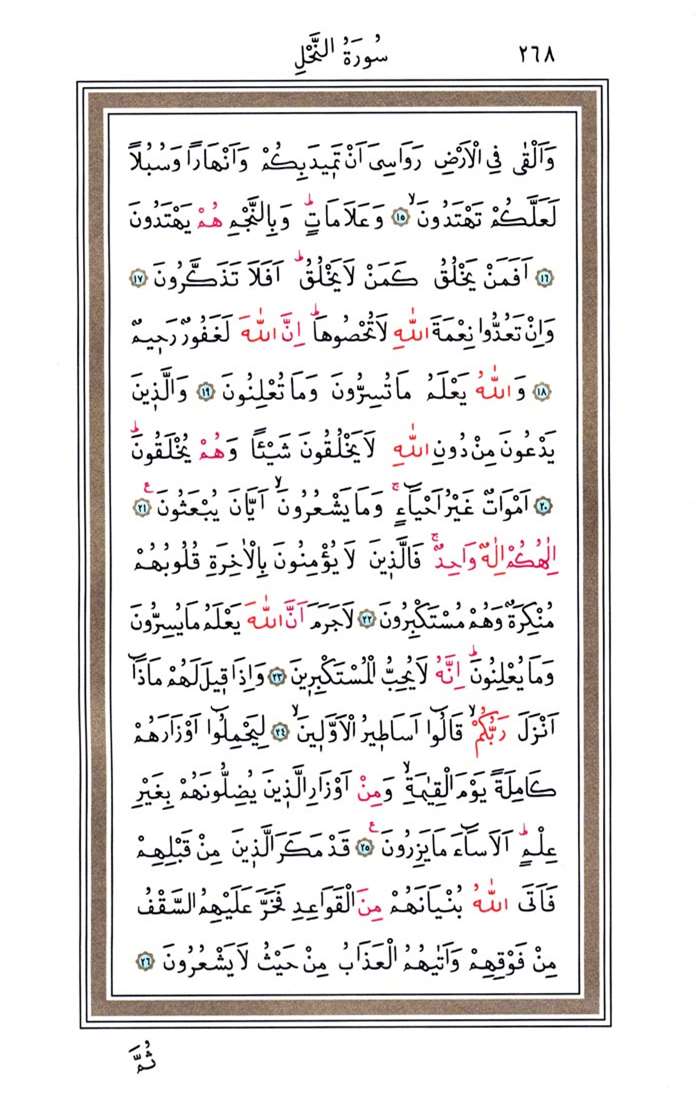 ٢٦٨
سُورَةُ النَّحْلِ
وَاَلْقٰى فِى الْاَرْضِ رَوَاسِىَ اَنْ تَمٖيدَ بِكُمْ وَاَنْهَارًا وَسُبُلًا
لَعَلَّكُمْ تَهْتَدُونَۙ ﴿١٥﴾ وَعَلَامَاتٍۜ وَبِالنَّجْمِ هُمْ يَهْتَدُونَ
﴿١٦﴾ اَفَمَنْ يَخْلُقُ كَمَنْ لَا يَخْلُقُۜ اَفَلَا تَذَكَّرُونَ ﴿١٧﴾
وَاِنْ تَعُدُّوا نِعْمَةَ اللّٰهِ لَا تُحْصُوهَاۜ اِنَّ اللّٰهَ لَغَفُورٌ رَحٖيمٌ
﴿١٨﴾ وَاللّٰهُ يَعْلَمُ مَا تُسِرُّونَ وَمَا تُعْلِنُونَ ﴿١٩﴾ وَالَّذٖينَ
يَدْعُونَ مِنْ دُونِ اللّٰهِ لَا يَخْلُقُونَ شَيْـًٔا وَهُمْ يُخْلَقُونَۜ
﴿٢٠﴾ اَمْوَاتٌ غَيْرُ اَحْيَٓاءٍۚ وَمَا يَشْعُرُونَۙ اَيَّانَ يُبْعَثُونَ ࣖ ﴿٢١﴾
اِلٰهُكُمْ اِلٰهٌ وَاحِدٌۚ فَالَّذٖينَ لَا يُؤْمِنُونَ بِالْاٰخِرَةِ قُلُوبُهُمْ
مُنْكِرَةٌ وَهُمْ مُسْتَكْبِرُونَ ﴿٢٢﴾ لَا جَرَمَ اَنَّ اللّٰهَ يَعْلَمُ مَا يُسِرُّونَ
وَمَا يُعْلِنُونَۜ اِنَّهُ لَا يُحِبُّ الْمُسْتَكْبِرٖينَ ﴿٢٣﴾ وَاِذَا قٖيلَ لَهُمْ مَاذَٓا
اَنْزَلَ رَبُّكُمْۙ قَالُٓوا اَسَاطٖيرُ الْاَوَّلٖينَۙ ﴿٢٤﴾ لِيَحْمِلُٓوا اَوْزَارَهُمْ
كَامِلَةً يَوْمَ الْقِيٰمَةِۙ وَمِنْ اَوْزَارِ الَّذٖينَ يُضِلُّونَهُمْ بِغَيْرِ
عِلْمٍۜ اَلَا سَٓاءَ مَا يَزِرُونَ ࣖ ﴿٢٥﴾ قَدْ مَكَرَ الَّذٖينَ مِنْ قَبْلِهِمْ
فَاَتَى اللّٰهُ بُنْيَانَهُمْ مِنَ الْقَوَاعِدِ فَخَرَّ عَلَيْهِمُ السَّقْفُ
مِنْ فَوْقِهِمْ وَاَتٰيهُمُ الْعَذَابُ مِنْ حَيْثُ لَا يَشْعُرُونَ ﴿٢٦﴾
ثُمَّ